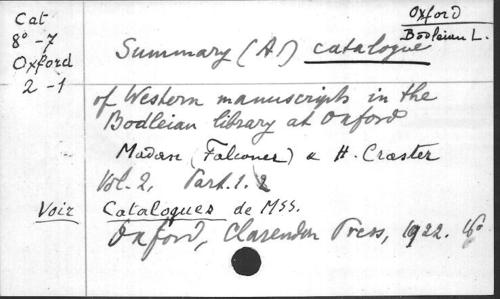 Cat
8° -7
Oxford
2 -1
Oxford
Bodleian L.
Summary (A.) catalogue
of Western manuscripts in the
Bodleian library at Oxford
Madan (Falconer) & H. Craster
Vol. 2, Part. 1.
Voir Catalogues de MSS.
Oxford, Clarendon Press, 1922. 8°